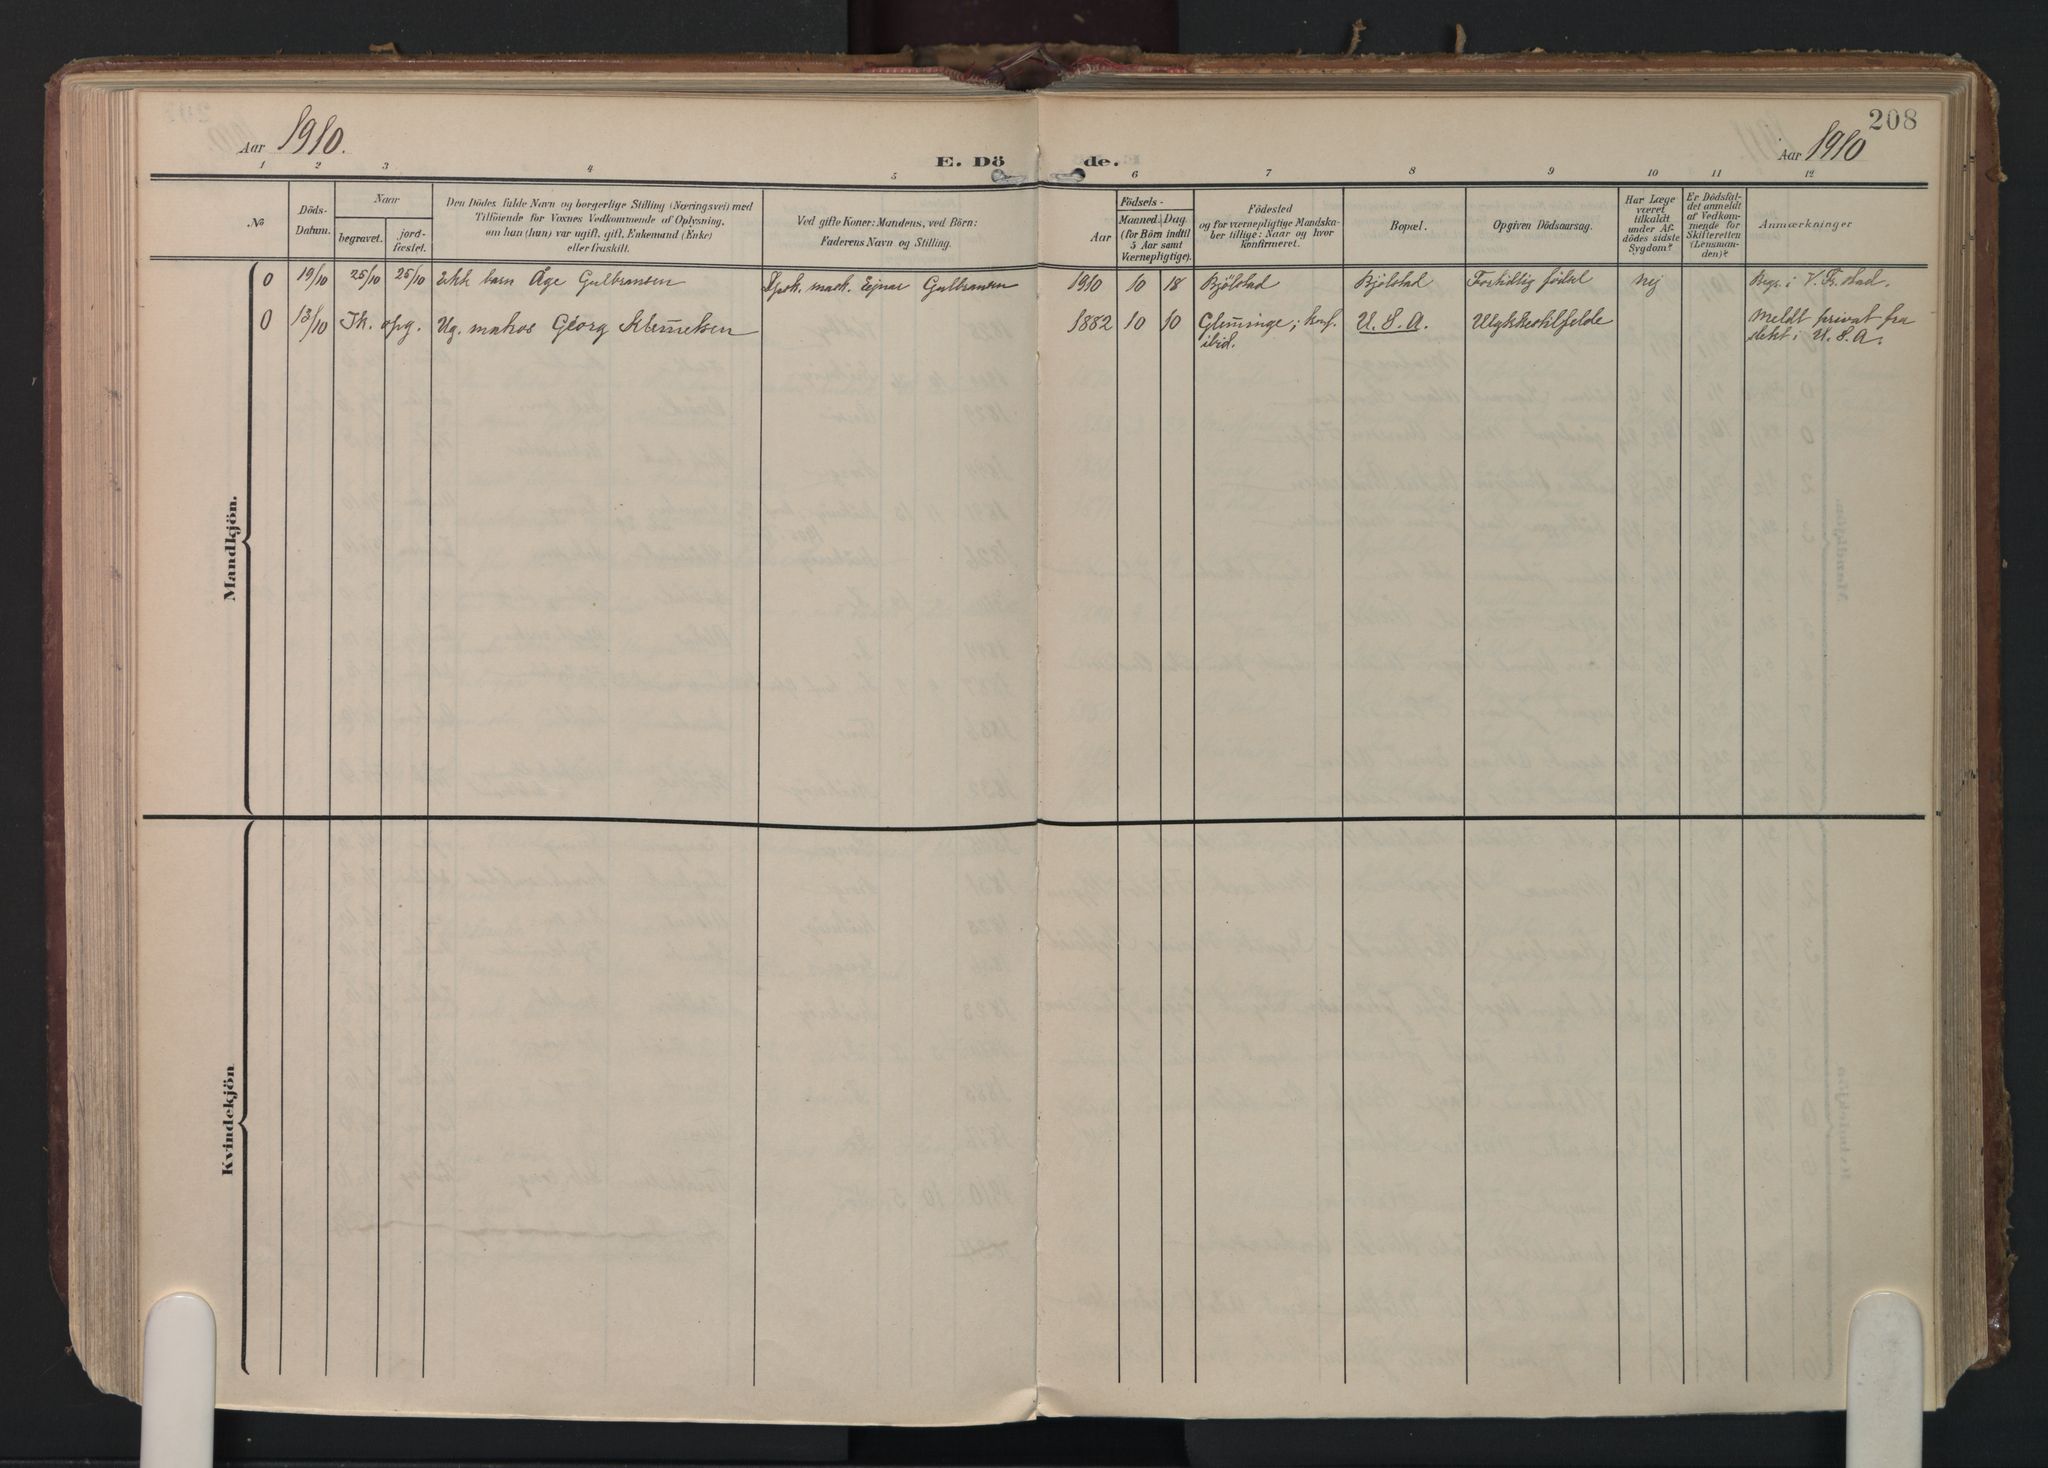 208
Aar 1910.
E. Döde.
Aar 1910
1 2 3 4 5 6 7 8 9 10 11 12
No
Döds-
Datum.
Naar
begravet.
jord-
fæstet.
Den Dödes fulde Navn og borgerlige Stilling (Næringsvei) med
Tilföiende for Voxnes Vedkommende af Oplysning,
om han (hun) var ugift, gift, Enkemand (Enke)
eller fraskilt.
Ved gifte Koner: Mandens, ved Börn:
Faderens Navn og Stilling.
Födsels-
Aar
Maaned. Dag.
(for Börn indtil
5 Aar samt
Værnepligtige).
Födested
og for værnepligtige Mandska-
ber tillige: Naar og hvor
konfirmeret.
Bopæl.
Opgiven Dödsaarsag.
Har Læge
været
tilkaldt
under Af-
dödes sidste
Sygdom?
Er Dödsfal-
det anmeldt
af Vedkom-
mende for
Skifteretten
(Lensman-
den)?
Anmærkninger
0 19/10 25/10 25/10 barn Åge Gulbransen mask. Ejnar Gulbransen 1910 10 18 Bjölstad Bjölstad Fortidlig födsel Nej Begr. i V. Fr.stad.
0 13/10 Ik. opg. Ug. matros Georg Klemetsen 1882 10 10 Glimminge; konf. U. S. A. Ulykkestilfelde Meldt privat fra
ibid. slekt i U. S. A.
Mandkjön.
Kvindekjön